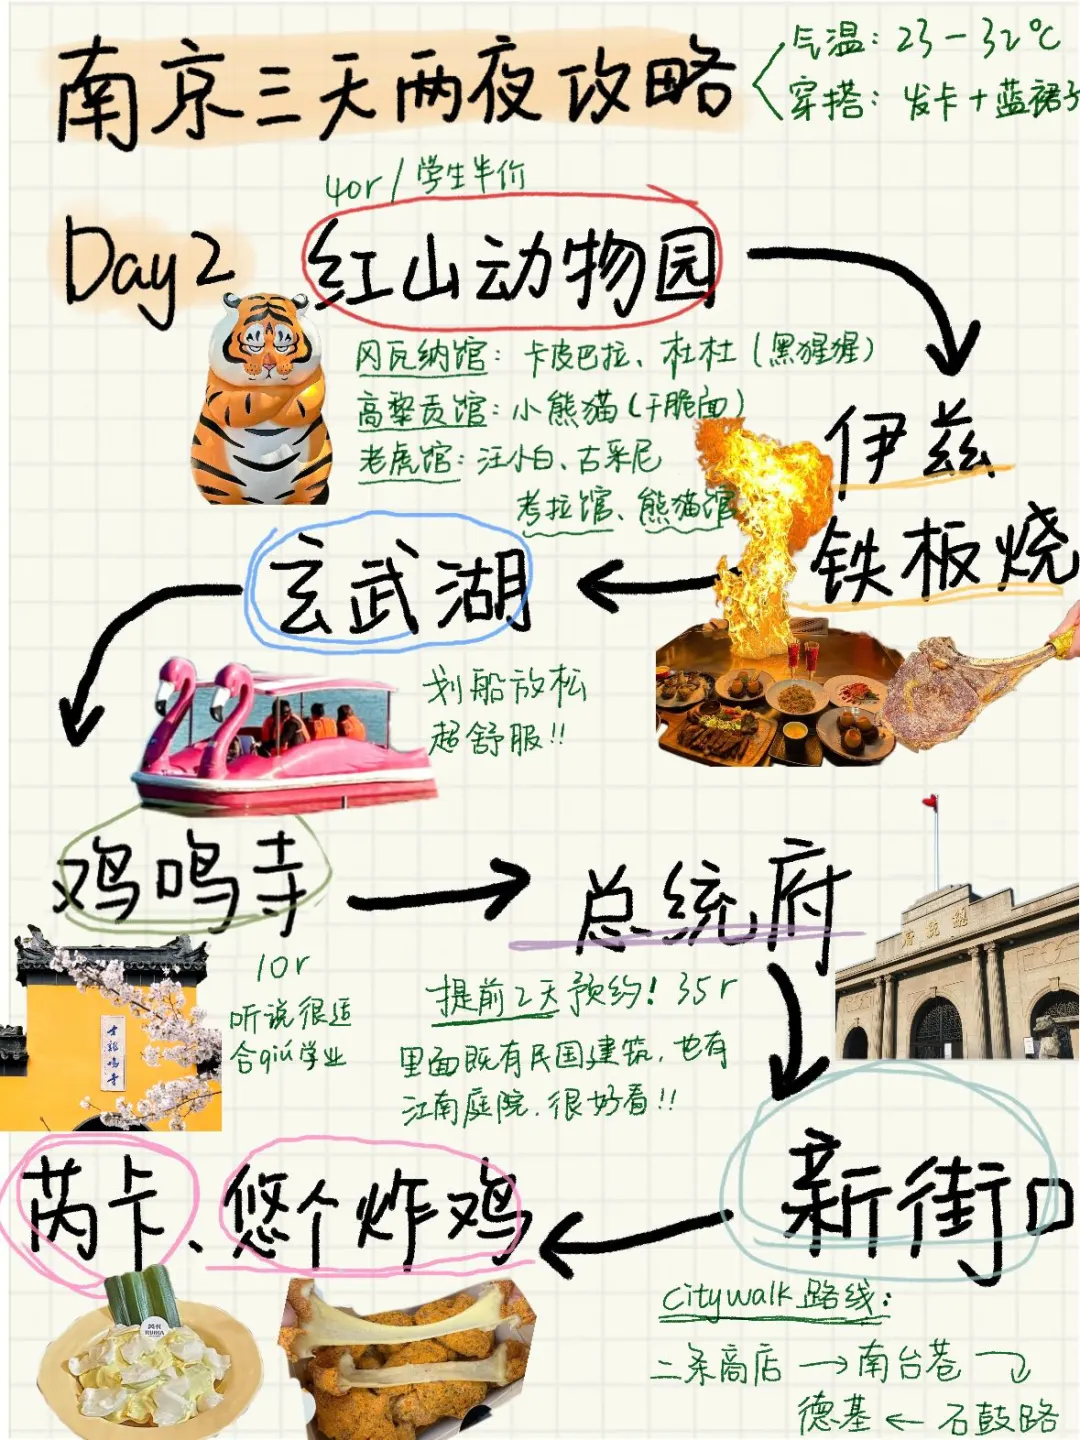 南京三天两夜攻略
气温：23－32℃
穿搭：发卡＋蓝裙子
40r/学生半价
Day2
红山动物园
冈瓦纳馆：卡皮巴拉、杜杜（黑猩猩）
高黎贡馆：小熊猫（干脆面）
老虎馆：汪小白、古采尼
考拉馆、熊猫馆
伊兹
铁板烧
玄武湖
划船放松
超舒服!!
鸡鸣寺
10r
听说很适
合qiú学业
古鸡鸣寺
总统府
提前2天预约！35r
里面既有民国建筑，也有
江南庭院，很好看!!
新街口
芮卡、悠个炸鸡
芮卡
RUIKA
Citywalk路线：
二条商店→南台巷
德基←石鼓路